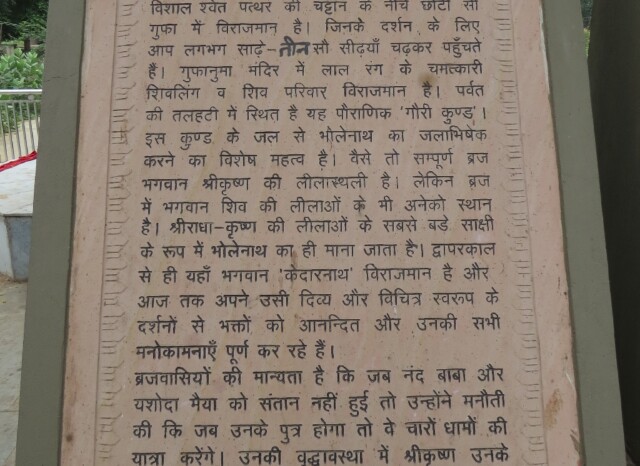 विशाल श्वेत पत्थर की चट्टान के नीचे छोटी सी
गुफा में विराजमान है। जिनके दर्शन के लिए
आप लगभग साढ़े-तीन सौ सीढ़याँ चढ़कर पहुँचते
हैं। गुफानुमा मंदिर में लाल रंग के चमत्कारी
शिवलिंग व शिव परिवार विराजमान है। पर्वत
की तलहटी में स्थित है यह पौराणिक 'गौरी कुण्ड'।
इस कुण्ड के जल से भोलेनाथ का जलाभिषेक
करने का विशेष महत्व है। वैसे तो सम्पूर्ण ब्रज
भगवान श्रीकृष्ण की लीलास्थली है। लेकिन ब्रज
में भगवान शिव की लीलाओं के भी अनेको स्थान
है। श्रीराधा-कृष्ण की लीलाओं के सबसे बड़े साक्षी
के रूप में भोलेनाथ का ही माना जाता है। द्वापरकाल
से ही यहाँ भगवान 'केदारनाथ' विराजमान है और
आज तक अपने उसी दिव्य और विचित्र स्वरूप के
दर्शनों से भक्तों को आनन्दित और उनकी सभी
मनोकामनाएँ पूर्ण कर रहे हैं।
ब्रजवासियों की मान्यता है कि जब नंद बाबा और
यशोदा मैया को संतान नहीं हुई तो उन्होंने मनौती
की कि जब उनके पुत्र होगा तो वे चारों धामों की
यात्रा करेंगे। उनकी वृद्धावस्था में श्रीकृष्ण उनके